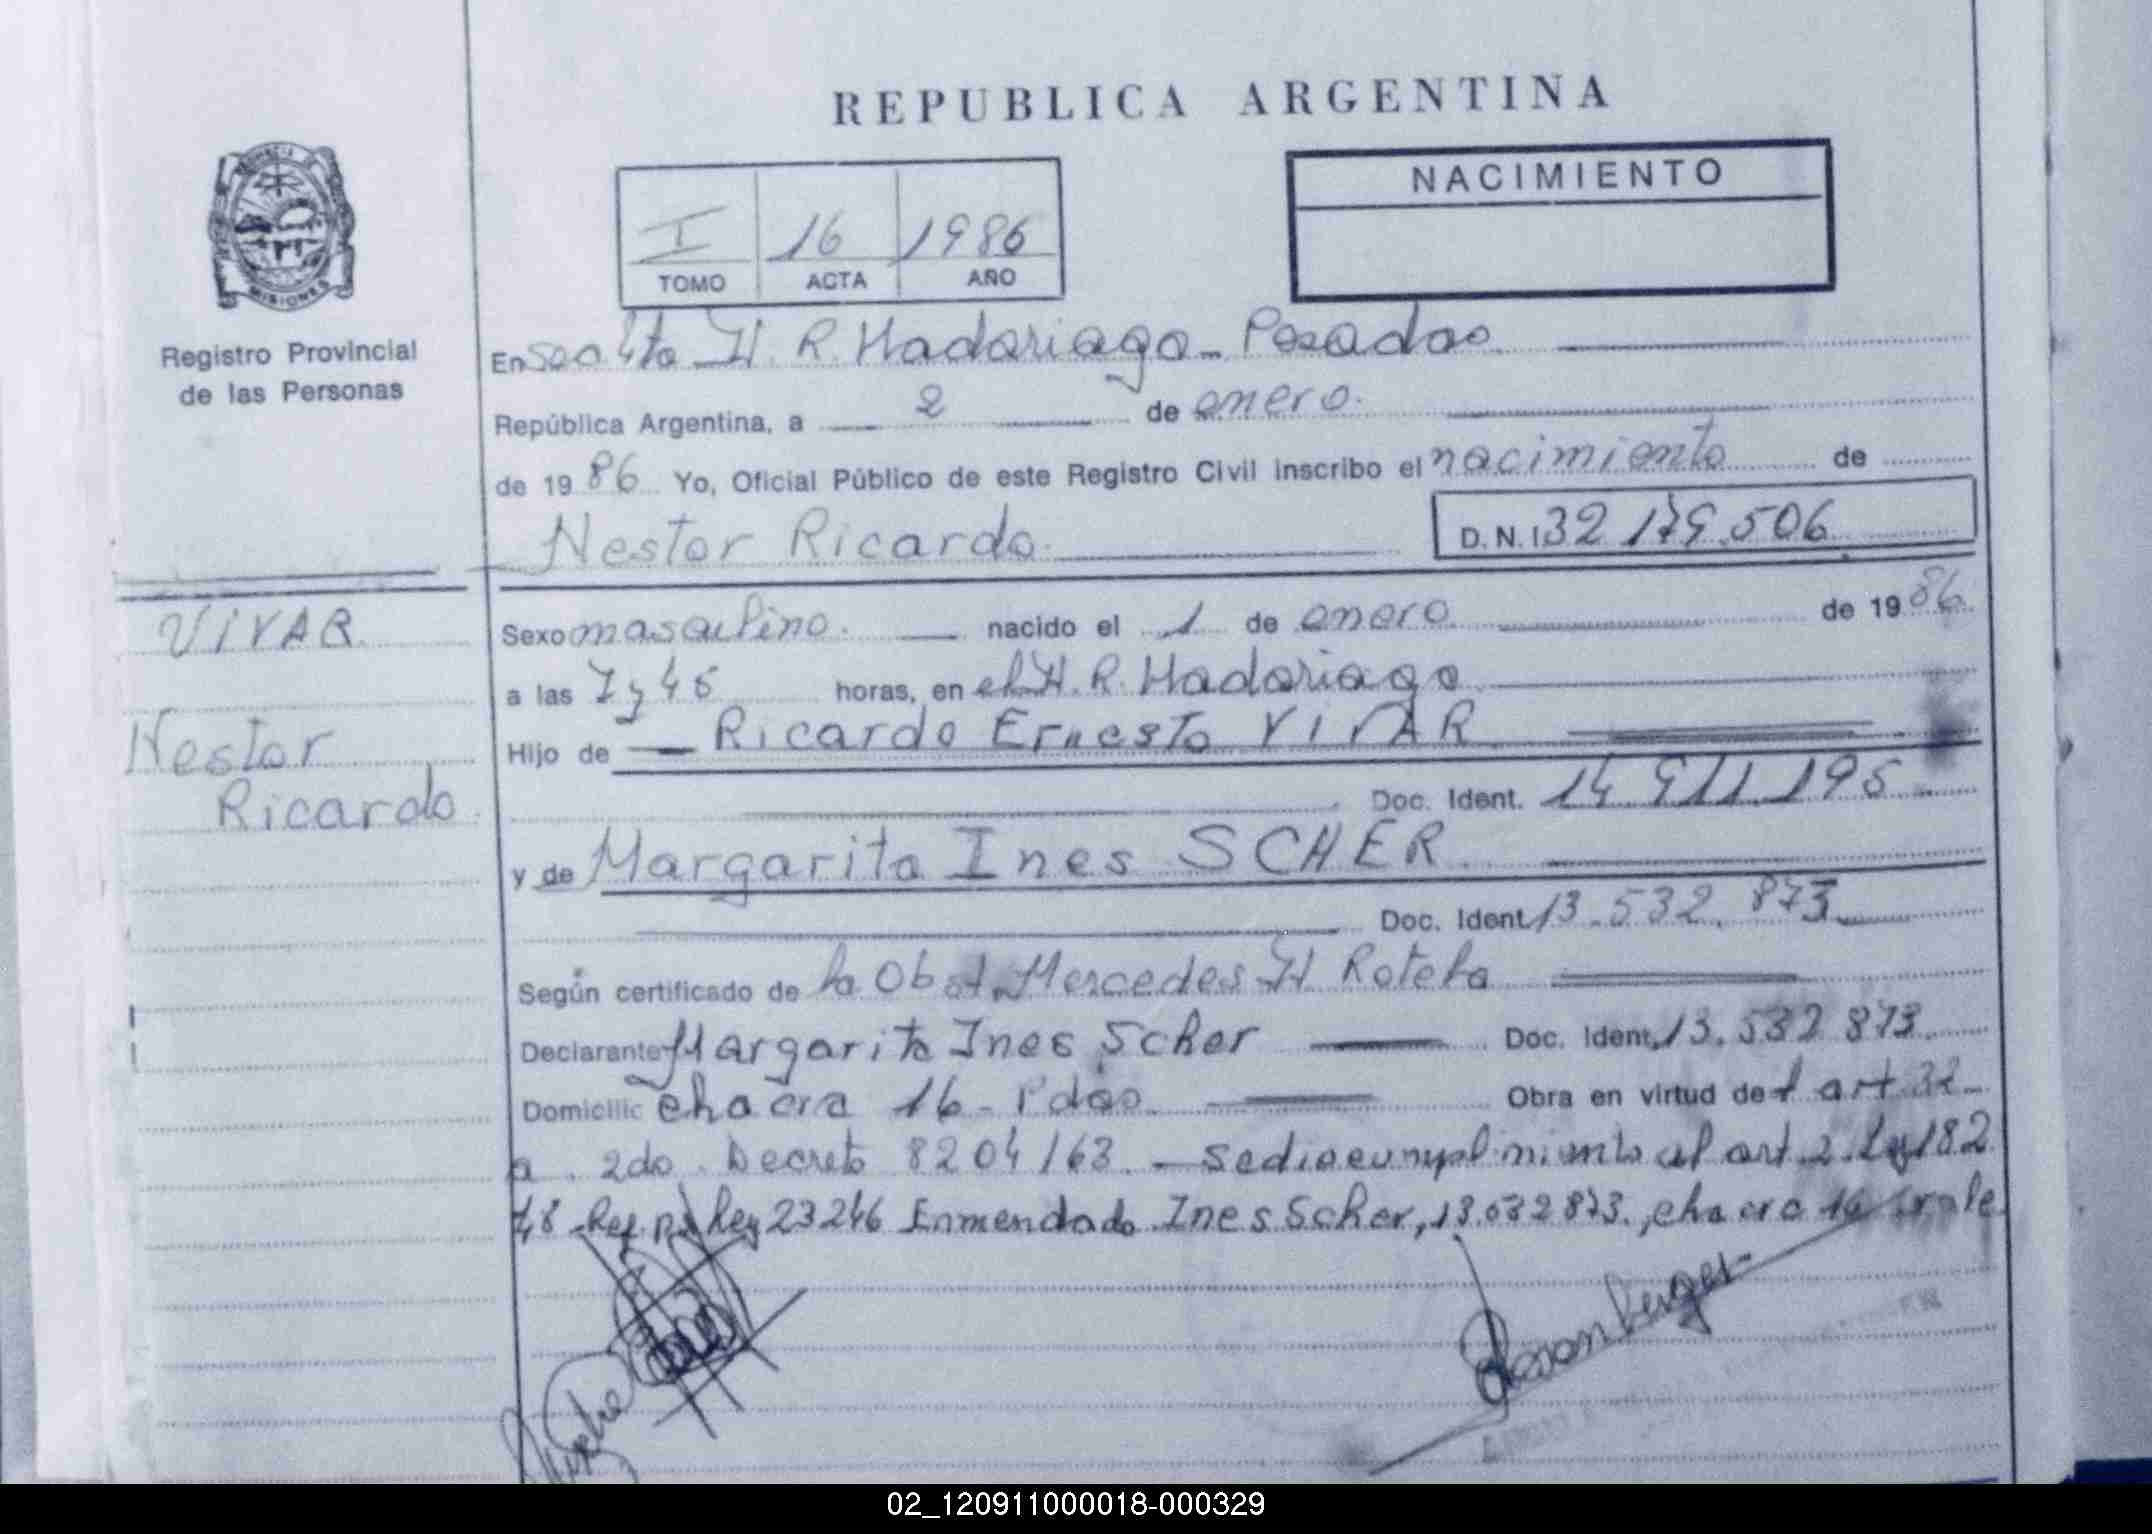 REPUBLICA ARGENTINA
I 16 1986
TOMO ACTA AÑO
NACIMIENTO
MISIONES
Registro Provincial
de las Personas
En Secc 4ta H. R. Madariaga - Posadas
República Argentina, a 2 de enero.
de 19 86 Yo, Oficial Público de este Registro Civil inscribo el nacimiento de
Nestor Ricardo.
D. N. I 32 179.506
VIVAR
Nestor
Ricardo.
Sexo masculino. nacido el 1 de enero de 19 86
a las 7 y 45 horas, en el H. R. Madariaga
Hijo de Ricardo Ernesto VIVAR
Doc. Ident. 14 911.195
y de Margarita Ines SCHER
Doc. Ident. 13.532.873
Según certificado de la Obst. Mercedes H Rotela
Declarante Margarita Ines Scher Doc. Ident. 13.532 873.
Domicilio chacra 16 - Pdas Obra en virtud del art. 32
a. 2do. Decreto 8204/63. - Se dio cumplimiento al art. 2. Ley 182
48 - Ref. por Ley 23246 Enmendado Ines Scher, 13.532 873., chacra 16 vale
02_120911000018-000329